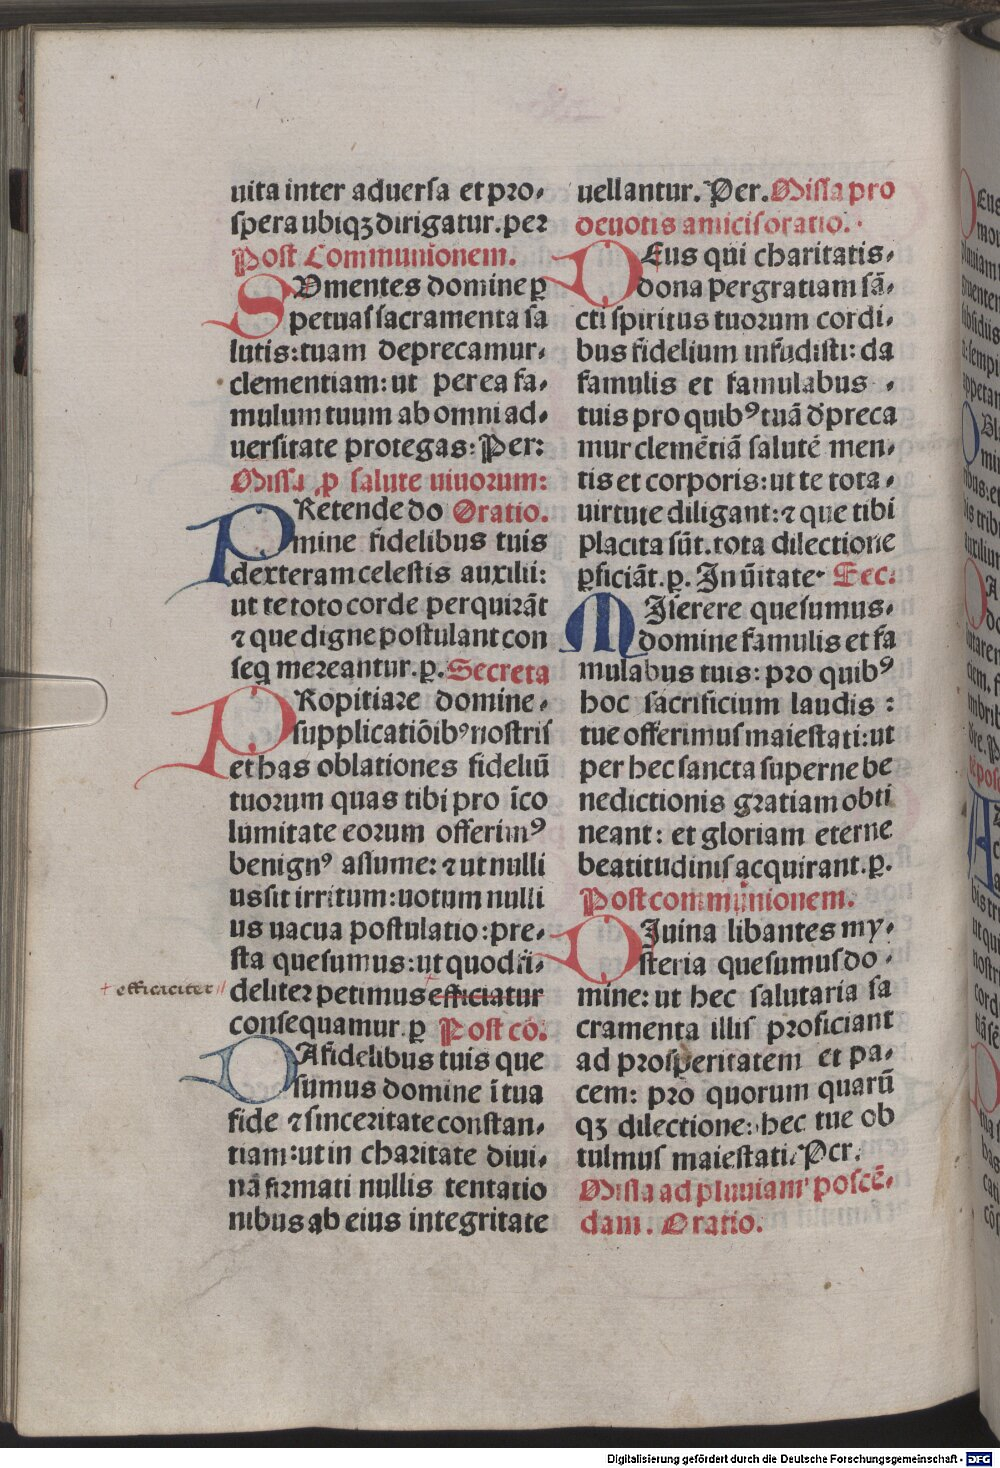 uita inter aduersa et pro,
spera ubiqꝫ dirigatur. per
Post Communionem.
SUmentes domine ꝑ
petuas sacramenta sa
lutis: tuam deprecamur,
clementiam: ut per ea fa,
mulum tuum ab omni ad,
uersitate protegas: Per:
Missa ꝓ salute uiuorum:
PRetende do Oratio.
mine fidelibus tuis
dexteram celestis auxilii:
ut te toto corde perquirāt
⁊ que digne postulant con
seq mereantur. ꝑ. Secreta
PRopitiare domine,
supplicatiōibꝰ nostris
et has oblationes fideliū
tuorum quas tibi pro īco
lumitate eorum offerimꝰ
benignꝰ assume: ⁊ ut nulli
us sit irritum: uotum nulli
us uacua postulatio: pre,
sta quesumus: ut quod fi,
+ efficaciter // deliter petimus efficiatur
consequamur. ꝑ Post cō.
DA fidelibus tuis que
sumus domine ī tua
fide ⁊ sinceritate constan,
tiam: ut in charitate diui,
nā firmati nullis tentatio
nibus ab eius integritate
uellantur. Per. Missa pro
deuotis amicis oratio.
DEus qui charitatis,
dona per gratiam sā,
cti spiritus tuorum cordi,
bus fidelium infudisti: da
famulis et famulabus ,
tuis pro quibꝰ tuā dˀpreca
mur clemētiā salutē men,
tis et corporis: ut te tota,
uirtute diligant: ⁊ que tibi
placita sūt. tota dilectione
ꝑficiāt. ꝑ. In ūitate. Sec.
MIserere quesumus,
domine famulis et fa
mulabus tuis: pro quibꝰ
hoc sacrificium laudis :
tue offerimus maiestati: ut
per hec sancta superne be
nedictionis gratiam obti
neant: et gloriam eterne
beatitudinis acquirant. ꝑ.
Postcommunionem.
DIuina libantes my,
steria quesumus do,
mine: ut hec salutaria sa
cramenta illis proficiant
ad prosperitatem et pa,
cem: pro quorum quarū
qꝫ dilectione: hec tue ob
tulmus maiestati. Per.
Missa ad pluuiam poscē,
dam. Oratio.
Digitalisierung gefördert durch die Deutsche Forschungsgemeinschaft - DFG